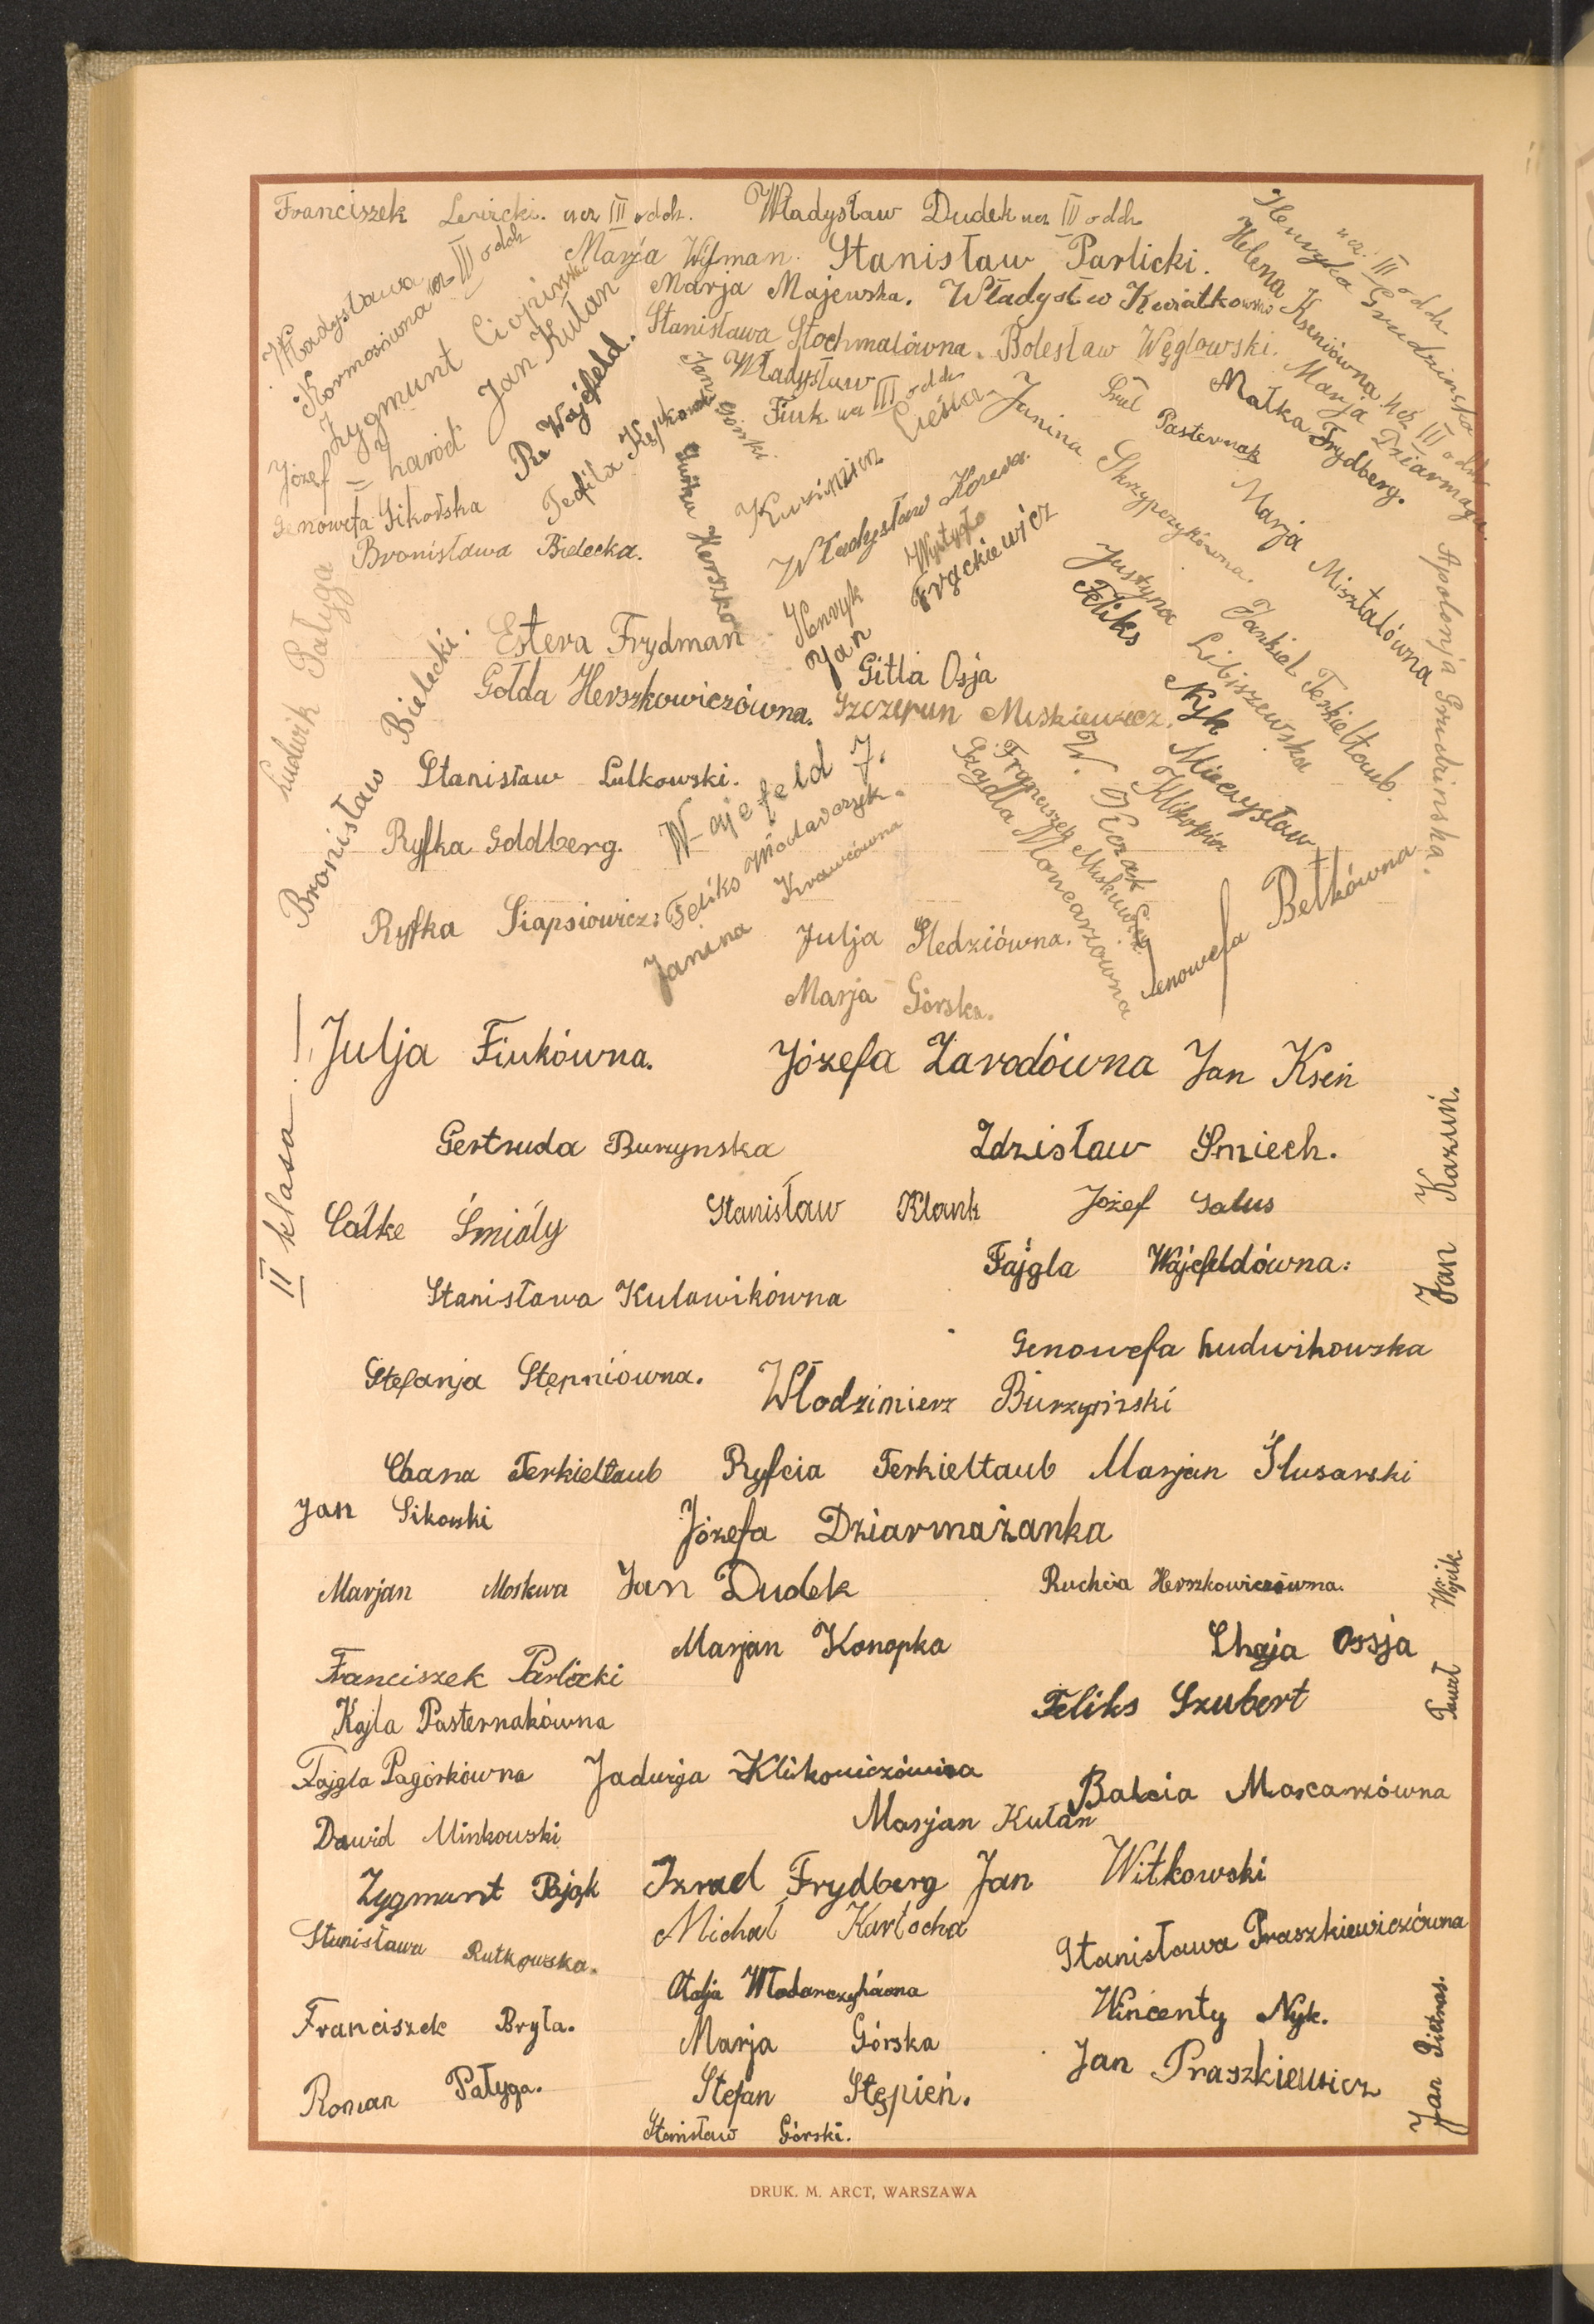 Franciszek ucz III oddz.
Władysław Dudek ucz III oddz
Henryka Grudzinska
ucz. III oddz
Helena Kseniówna ucz III oddz
Marja Dziarmaga.
Marja Wijsman.
Stanisław Parlicki.
Marja Majewska.
Władysław Kwiatkowski
Stanisława Stochmalówna.
Bolesław Węglowski.
Władysława
Kormosówna ucz III oddz
Zygmunt Ciopinski
Jan Kułan
Józef
Re Wajsfeld.
Teofila
Władysław
Fiuk ucz III oddz
Jan Górski
Genowefa Sikorska
Bronisława Bielecka.
Herszko
Kazimierz Cieślik
Władysław
Henryk
Jan Frąckiewicz
Janina Skrzypczykówna.
Srul Pasternak
Małka Frydberg.
Marja Misztalówna
Justyna Libiszewska
Feliks Nyk
Jankiel Terkieltaub.
Apolonja Grudzinska.
Ludwik Pałyga
Bronisław Bielecki.
Estera Frydman
Gitla Osja
Gołda Herszkowiczówna.
Szczepan Miskiewicz.
Stanisław Lulkowski.
Wajsfeld J.
Mieczysław
Klikowicz
Franciszek Miskiewicz
Szajdla Moncarzówna
Ryfka Goldberg.
Feliks Włodarczyk.
Janina Krawcówna
Ryfka Siapsiowicz:
Julja Śledziówna.
Genowefa Betkówna
Marja Górska.
II klasa!
Julja Fiukówna.
Józefa Zarodówna
Jan Kseń
Gertruda Burzynska
Zdzisław Śmiech.
Jan Kazuń.
Całke Śmiały
Stanisław Klank
Józef Galus
Fajgla Wajsfeldówna:
Stanisława Kulawikówna
Genowefa Ludwikowska
Stefanja Stępniówna.
Włodzimierz Burzyński
Chana Terkieltaub
Ryfcia Terkieltaub
Marjan Ślusarski
Jan Sikorski
Józefa Dziarmażanka
Marjan Moskwa
Jan Dudek
Ruchcia Herszkowiczówna.
Paweł Wójcik
Franciszek Parlicki
Marjan Konopka
Chaja Ossja
Kajla Pasternakówna
Feliks Szubert
Fajgla Pagórkówna
Jadwiga Klikowiczówna
Balcia Moncarzówna
Dawid Minkowski
Marjan Kułan
Zygmunt Pająk
Izrael Frydberg
Jan Witkowski
Stanisława Rutkowska.
Michał Karłocha
Stanisława Praszkiewiczówna
Otolja Włodarczykówna
Franciszek Bryła.
Marja Górska
Wincenty Nyk.
Roman Pałyga.
Stefan Stępień.
Jan Praszkiewicz
Jan Pietras.
Stanisław Górski.
DRUK. M. ARCT, WARSZAWA